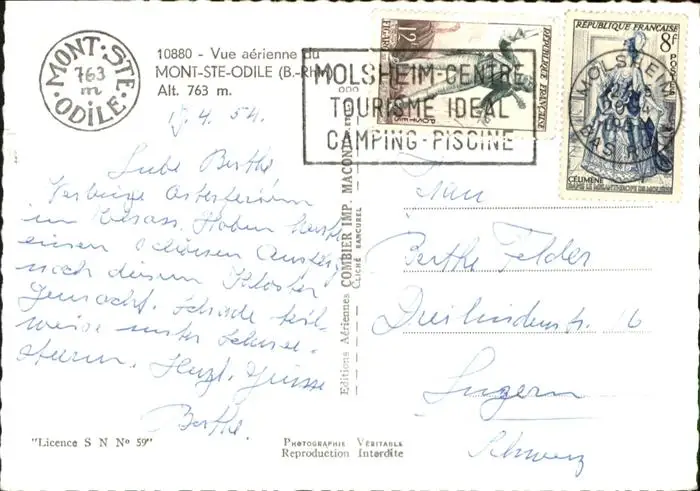 MONT-STE-ODILE
763 m
10880 - Vue aérienne du
MONT-STE-ODILE (B.-Rhin)
Alt. 763 m.
4. 54.
Liebe Berthe
Verbringe Osterferien
im Elsass. Haben heute
einen schönen Ausflug
nach diesem Kloster
gemacht. Schade teil-
weise unter Schnee-
sturm. Herzl. Grüsse
Berthe
"Licence S N Nº 59"
Editions Aériennes COMBIER IMP. MACON
CLICHÉ RANCUREL
PHOTOGRAPHIE VÉRITABLE
Reproduction Interdite
MOLSHEIM-CENTRE
TOURISME IDEAL
CAMPING-PISCINE
12F
REPUBLIQUE FRANÇAISE
REPUBLIQUE FRANÇAISE
8F
CÉLIMÈNE
DANS LE MISANTHROPE DE MOLIÈRE
MOLSHEIM
BAS RHIN
Frau
Berthe Felder
Dreilindenstr. 16
Luzern
Schweiz